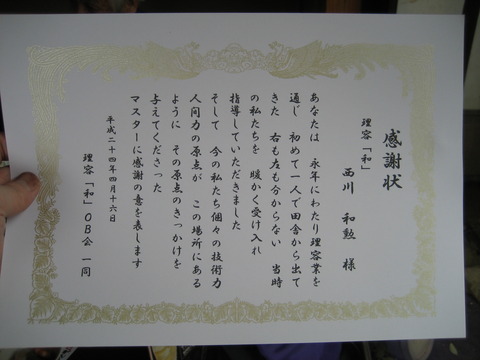 感謝状
理容「和」
西川 和勲 様
あなたは 永年にわたり理容業を
通じ 初めて一人で田舎から出て
きた 右も左も分からない 当時
の私たちを 暖かく受け入れ
指導していただきました
そして 今の私たち個々の技術力
人间力の原点が この場所にある
ように その原点のきっかけを
与えてくださった
マスターに感謝の意を表します
平成二十四年四月十六日
理容「和」OB会 一同